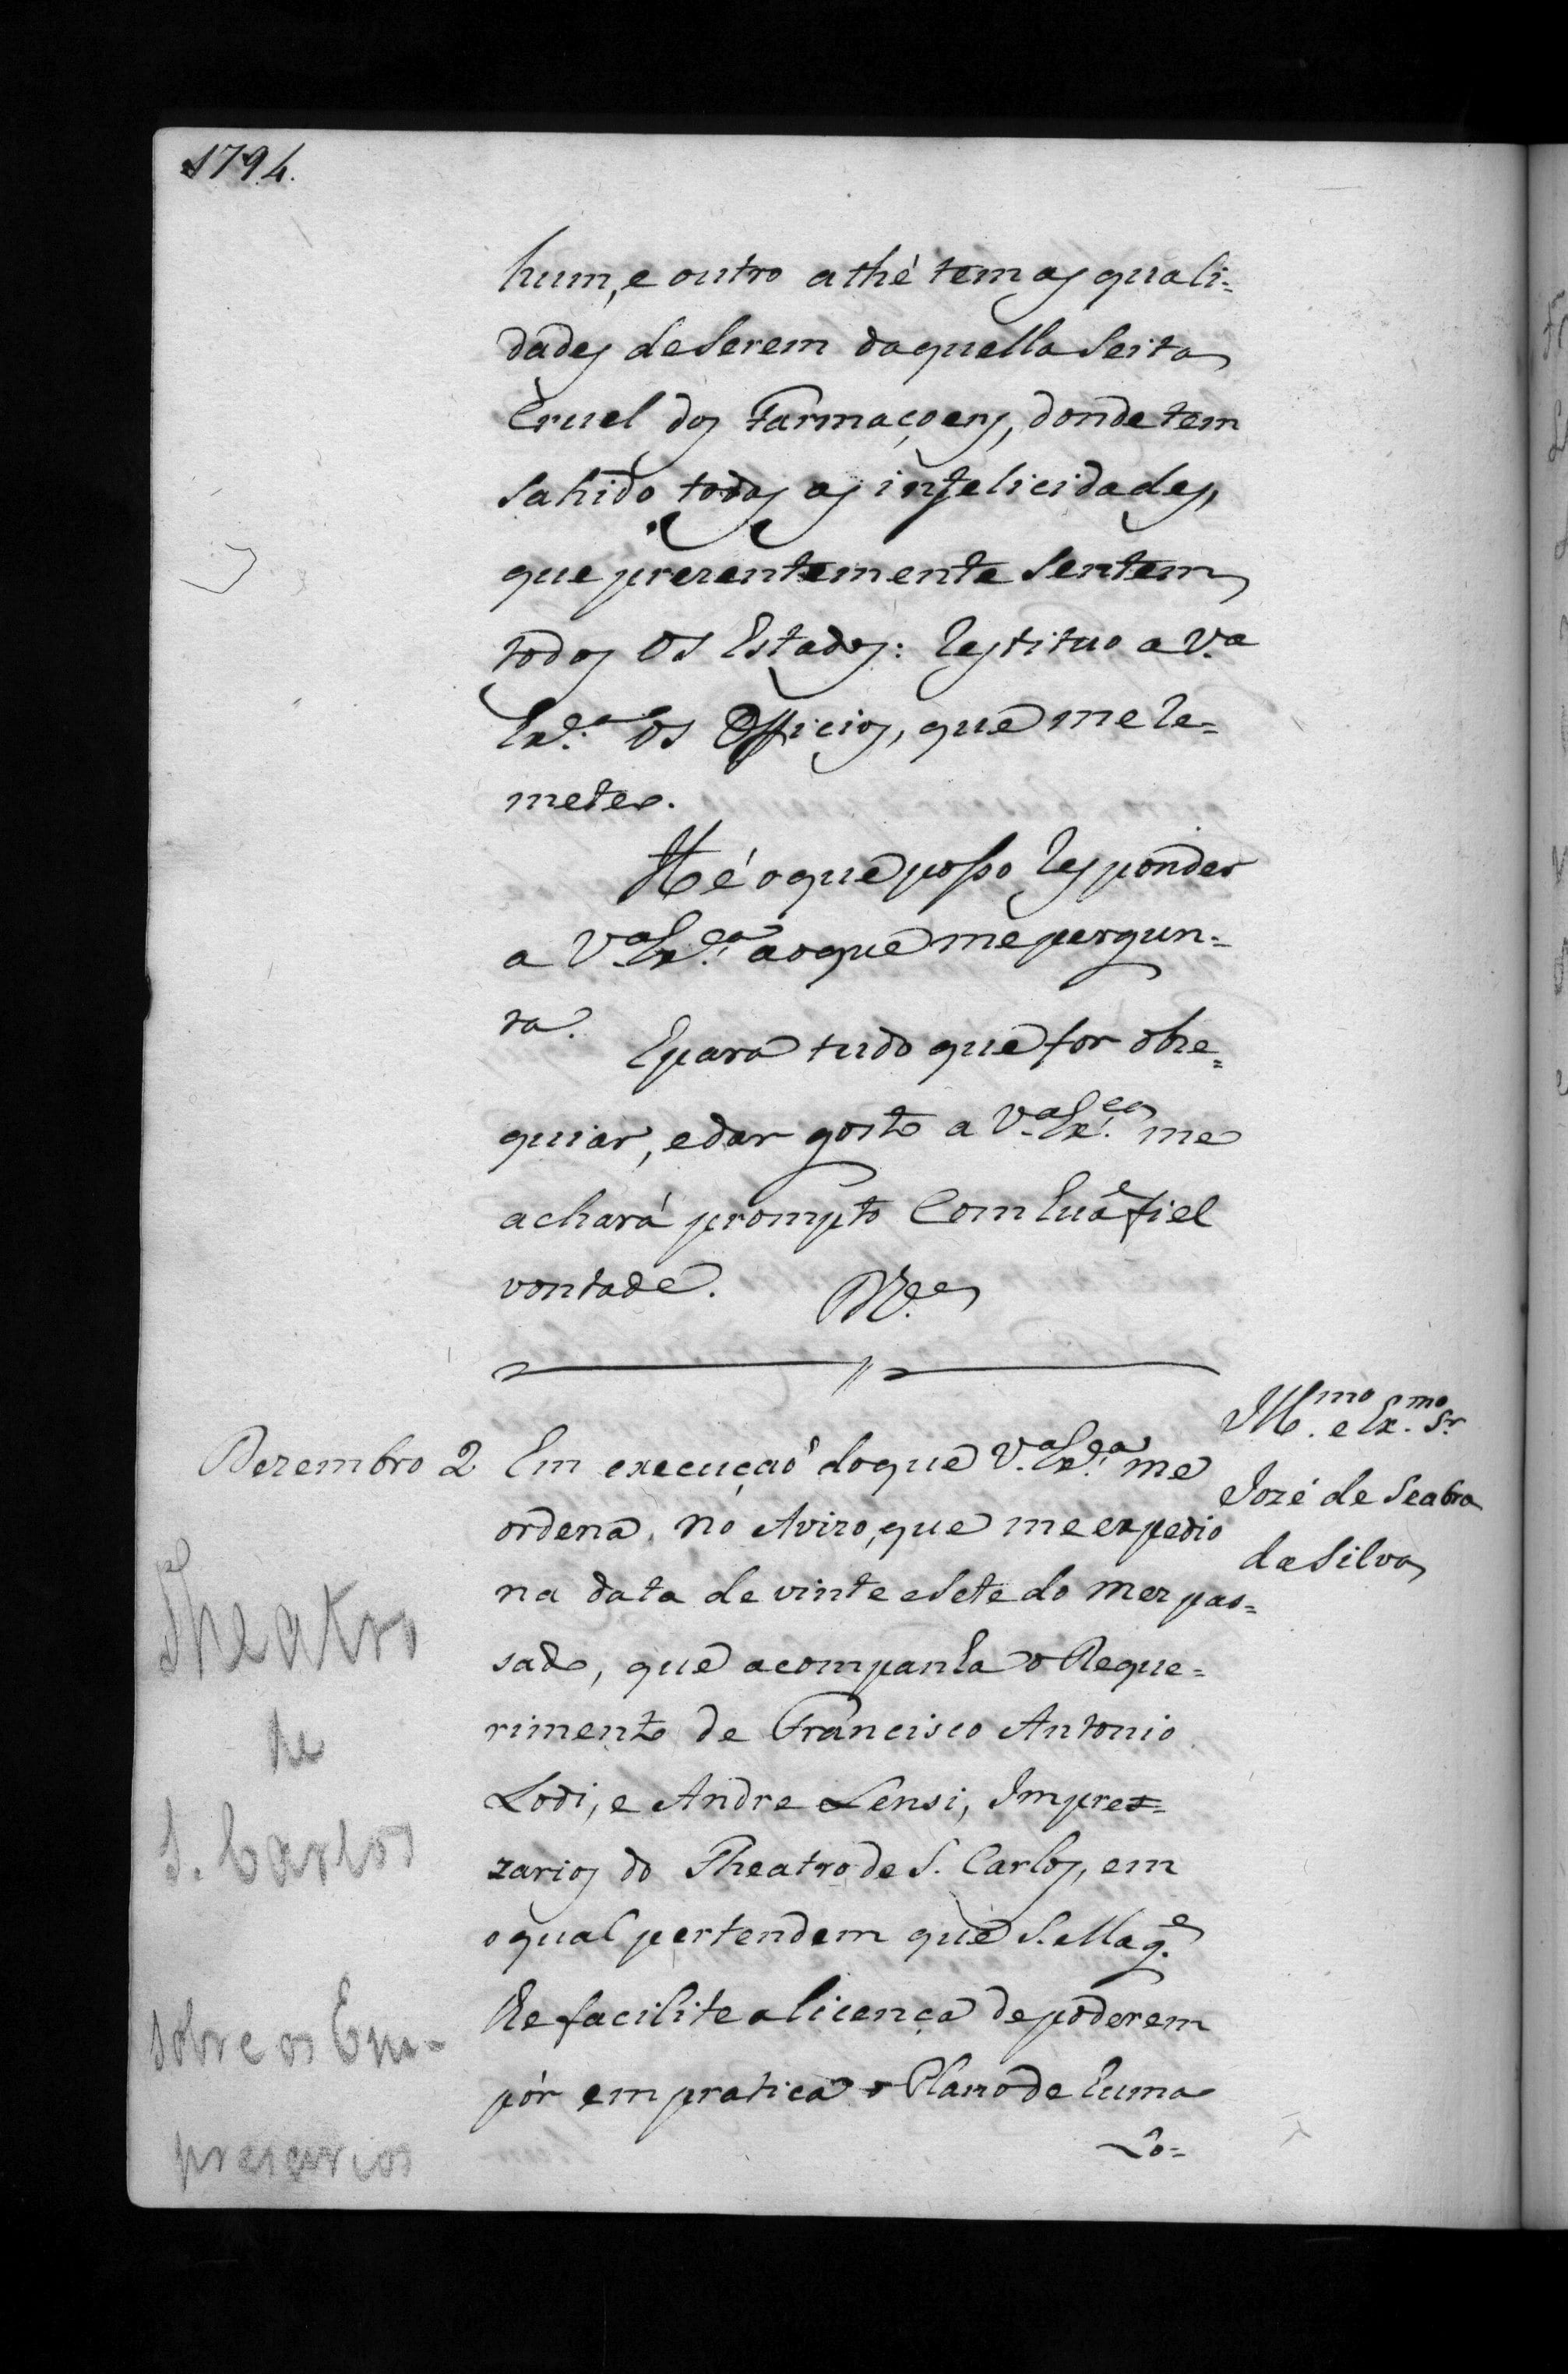 1794.
hum, e outro athé tem as quali=
dades de serem daquella Seita
Cruel dos Farmaçoens, donde tem
sahido todas as infelicidades,
que prezentemente sentem
todos os Estados: Restituo a V.a
Ex.ca os Officios, que me re=
meteo.
Hé o que posso responder
a V.a Ex.ca ao que me pergun=
ta.
E para tudo que for obse=
quiar, e dar gosto a V.a Ex.ca me
achará prompto com huã fiel
vontade.
Ill.mo e Ex.mo Sr.
Jozé de Seabra
da Silva
Dezembro 2
Em execução do que V.a Ex.ca me
ordena no Avizo, que me expedio
na data de vinte e sete do mez pas=
sado, que acompanha o Reque=
rimento de Francisco Antonio
Lodi, e Andre Lensi, Imprez=
zarios do Theatro de S. Carlos, em
o qual pertendem que S. Mag.e
lhe facilite a licença de poderem
pôr em pratica o Plano de huma
Lo=
Theatro
de
S. Carlos
sobre os Em-
presarios